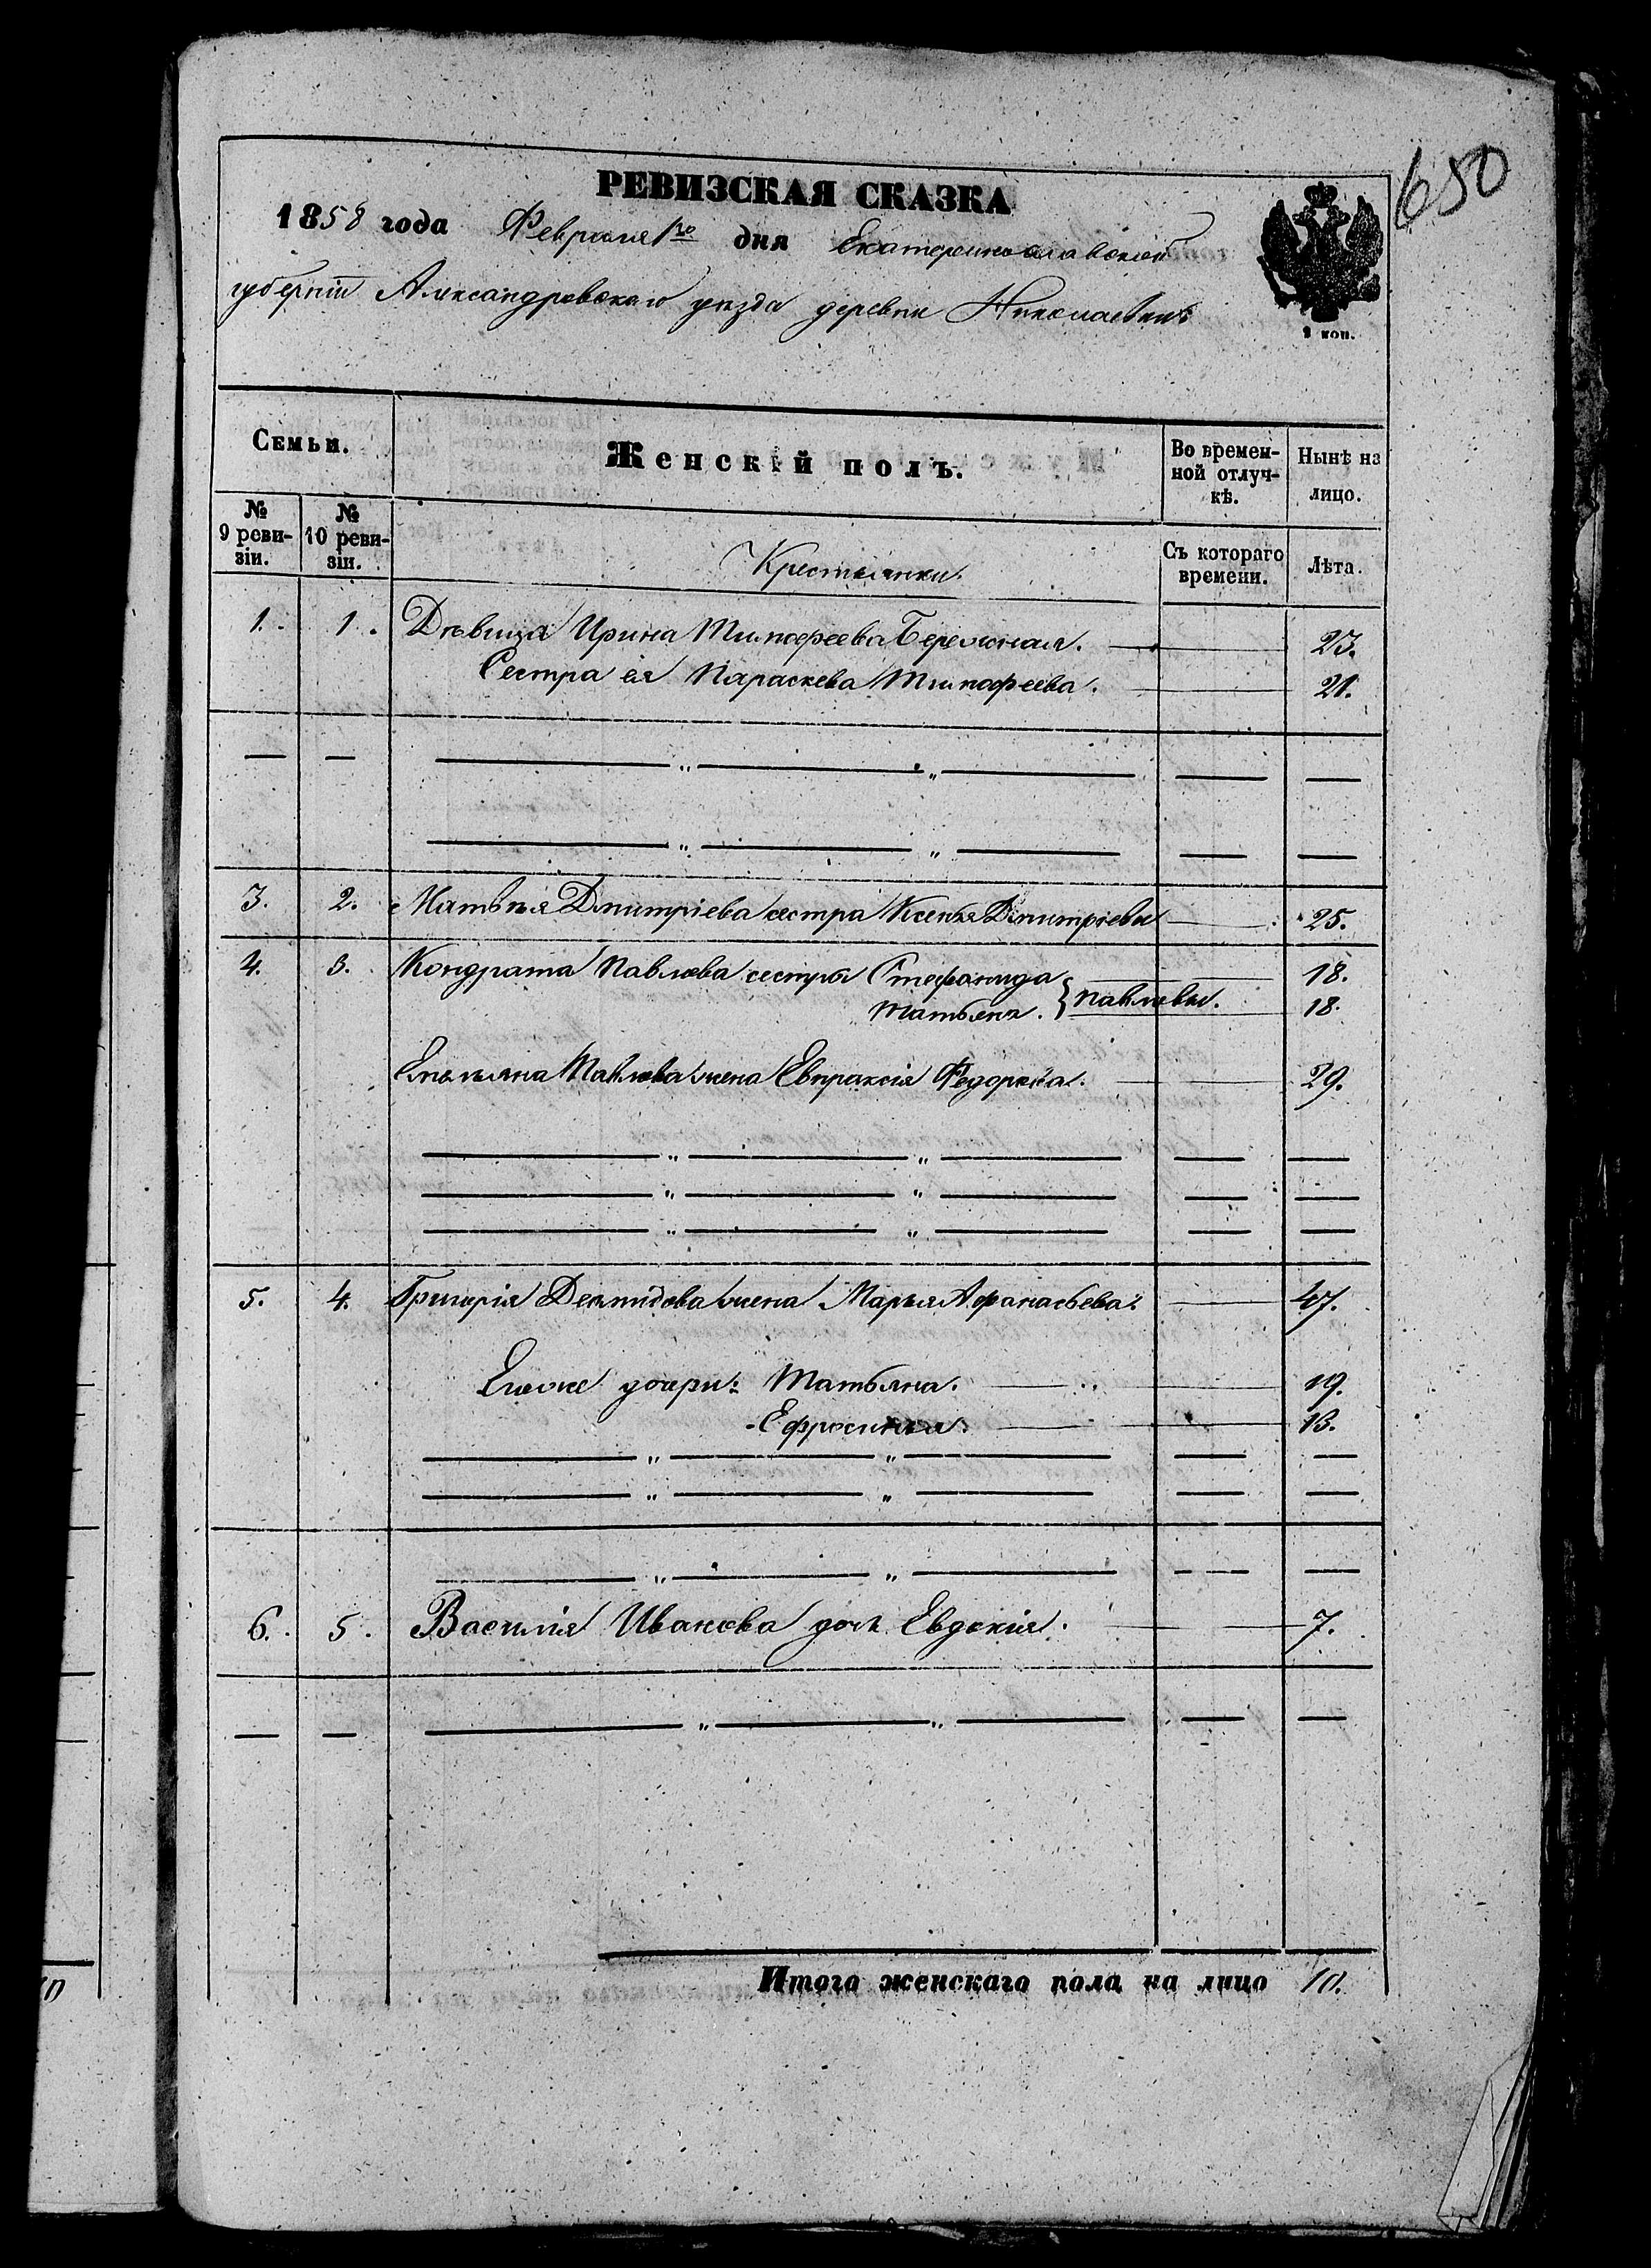 650
РЕВИЗСКАЯ СКАЗКА
1858 года Февраля 1го дня Екатеринославской
губерніи Александровскаго уѣзда деревни Николаевки
2 коп.
Семьи. Женскій полъ. Во времен-ной отлуч-кѣ. Нынѣ на лицо.
№ 9 реви-зіи. № 10 реви-зіи. Крестьянки. Съ котораго времени. Лѣта.
1. 1. Дѣвица Ирина Тимофеева Бережная. 23.
Сестра ея Параскева Тимофеева. 21.
3. 2. Матвѣя Дмитріева сестра Ксенья Дмитріева 25.
4. 3. Кондрата Павлова сестры Стефанида 18.
Татьяна. } Павловы. 18.
Емельяна Павлова жена Евпраксія Федорова. 29.
5. 4. Григорія Демидова жена Марья Афанасьева. 47.
Ихъ же дочери: Татьяна. 19.
Ефросинья. 13.
6. 5. Василія Иванова дочь Евдокія. 7.
Итого женскаго пола на лицо 10.